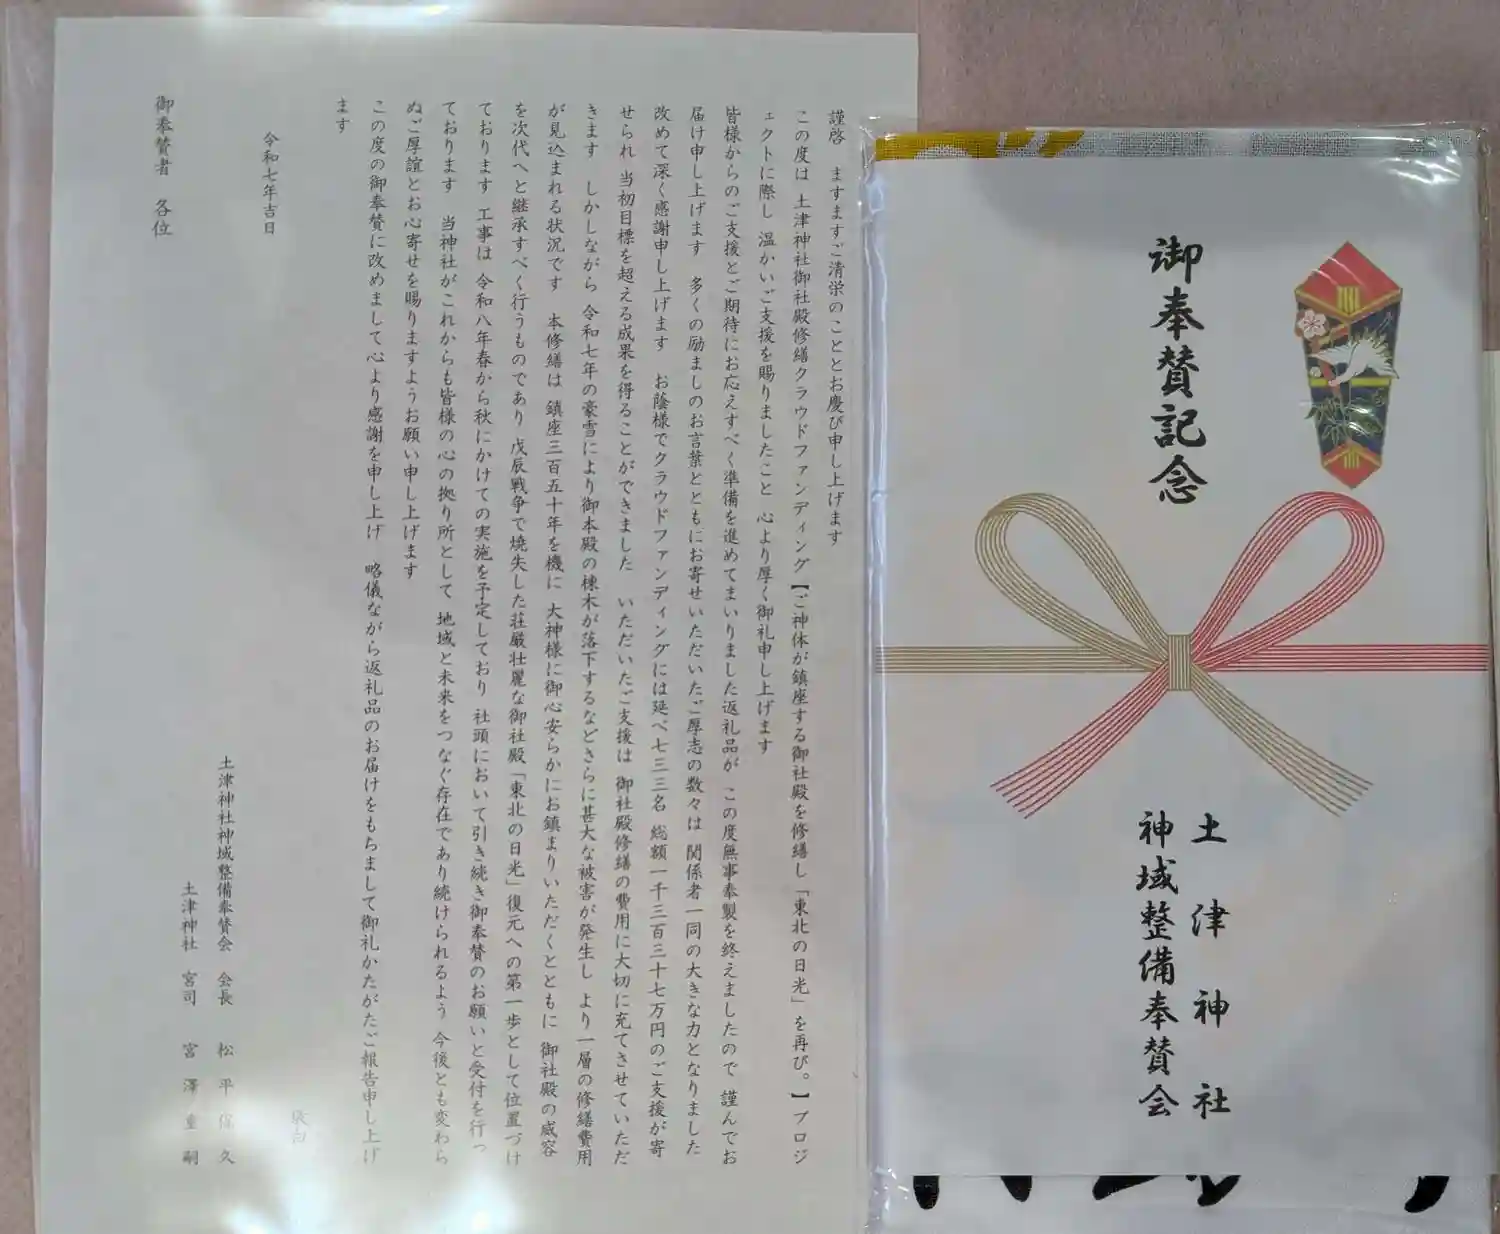 謹啓　ますますご清栄のこととお慶び申し上げます
この度は 土津神社御社殿修繕クラウドファンディング【ご神体が鎮座する御社殿を修繕し「東北の日光」を再び。】プロジ
ェクトに際し 温かいご支援を賜りましたこと 心より厚く御礼申し上げます
皆様からのご支援とご期待にお応えすべく準備を進めてまいりました返礼品が この度無事奉製を終えましたので 謹んでお
届け申し上げます 多くの励ましのお言葉とともにお寄せいただいたご厚志の数々は 関係者一同の大きな力となりました
改めて深く感謝申し上げます お蔭様でクラウドファンディングには延べ七三三名 総額一千三百三十七万円のご支援が寄
せられ 当初目標を超える成果を得ることができました いただいたご支援は 御社殿修繕の費用に大切に充てさせていただ
きます しかしながら 令和七年の豪雪により御本殿の棟木が落下するなどさらに甚大な被害が発生し より一層の修繕費用
が見込まれる状況です 本修繕は 鎮座三百五十年を機に 大神様に御心安らかにお鎮まりいただくとともに 御社殿の威容
を次代へと継承すべく行うものであり 戊辰戦争で焼失した荘厳壮麗な御社殿「東北の日光」復元への第一歩として位置づけ
ております 工事は 令和八年春から秋にかけての実施を予定しており 社頭において引き続き御奉賛のお願いと受付を行っ
ております 当神社がこれからも皆様の心の拠り所として 地域と未来をつなぐ存在であり続けられるよう 今後とも変わら
ぬご厚誼とお心寄せを賜りますようお願い申し上げます
この度の御奉賛に改めまして心より感謝を申し上げ 略儀ながら返礼品のお届けをもちまして御礼かたがたご報告申し上げ
ます
敬白
令和七年吉日
土津神社神域整備奉賛会 会長 松平保久
土津神社 宮司 宮澤重嗣
御奉賛者 各位
御奉賛記念
土津神社
神域整備奉賛会